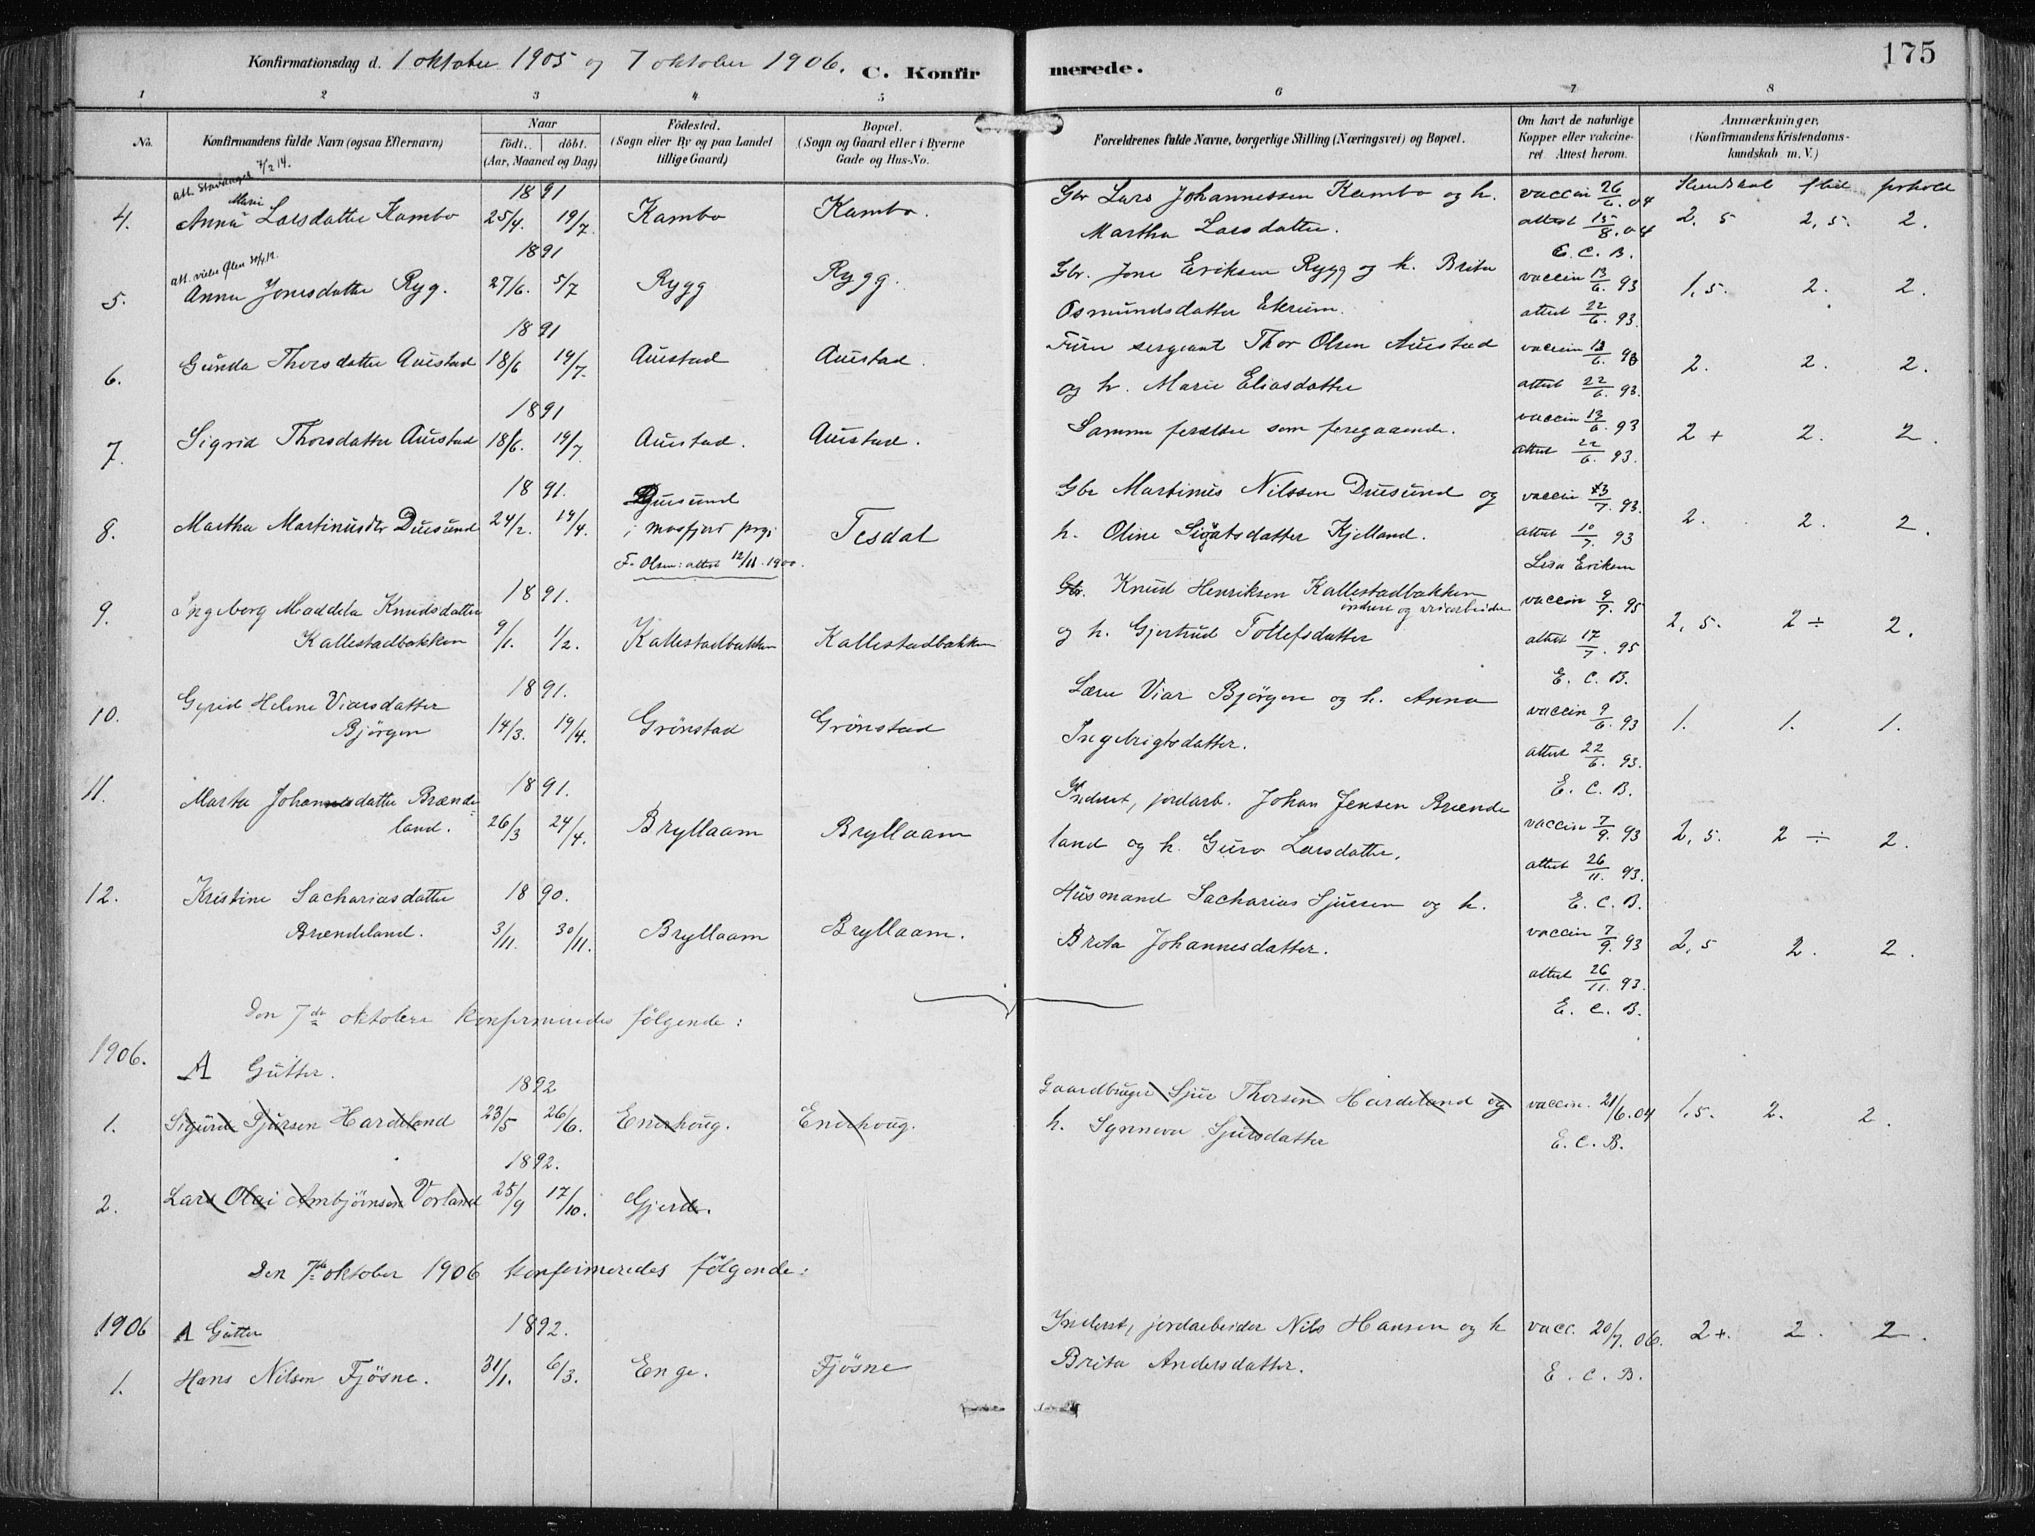 175
Konfirmationsdag d. 1 oktober 1905 og 7 oktober 1906. C. Konfirmerede.
1 2 3 4 5 6 7 8
No. Konfirmandens fulde Navn (ogsaa Efternavn) Naar født.. døbt. (Aar, Maaned og Dag) Fødested. (Sogn eller By og paa Landet tillige Gaard) Bopæl. (Sogn og Gaard eller i Byerne Gade og Hus-No. Forældrenes fulde Navne, borgerlige Stilling (Næringsvei) og Bopæl. Om havt de naturlige Kopper eller vakcineret Attest herom. Anmærkninger, (Konfirmandens Kristendomskundskab m. V.)
att. Stavanger 7/2 14.
Marie 1891 Gbr Lars Johannessen Kambo og h. vaccin 26/6.04 Kundskab flid forhold
4. Anna Larsdatter Kambo 25/4. 19/7. Kambo Kambo. Martha Larsdatter. attest 15/8.04 2,5 2,5. 2.
E. C. B.
1891 Gbr. Jone Eriksen Rygg og h. Brita vaccin 13/6. 93
5. Anna Jonesdatter Ryg. 27/6. 5/7 Rygg Rygg. Osmundsdatter Ekrum. attest 22/6. 93. 1,5. 2. 2.
1891 Furer sergeant Thor Olsen Austad vaccin 13/6. 93
6. Gunda Thorsdatter Austad 18/6 19/7. Austad Austad. og h. Marie Eliasdatter attest 22/6. 93. 2. 2. 2.
1891 vaccin 13/6. 93
7. Sigrid Thorsdatter Austad 18/6. 19/7 Austad. Austad. Samme forældre som foregaaende. attest 22/6. 93. 2 + 2. 2.
1891. Duesund Gbr Martinus Nilssen Duesund og vaccin 3/7. 93.
8. Martha Martinusdtr Duesund 24/2. 19/4. i Masfjord prgj Tesdal h. Oline Sigatsdatter Kjelland. attest 10/7. 93 2. 2. 2.
F. Olsen: attest 12/11. 1900. Lisa Eriksen
9. Ingeborg Maddela Knudsdatter 1891. Gbr. Knud Henriksen Kallestadbakken vaccin 9/7. 95
inderst og veiarbeider
Kallestadbakken 9/1. 1/2. Kallestadbakken Kallestadbakken og h. Gjertrud Tollefsdatter attest 17/7. 95 2,5. 2 ÷ 2.
E. C. B.
10. Gyrid Helene Viarsdatter 1891. Lærer Viar Bjørgen og h. Anna vaccin 9/6. 93
Bjørgen 14/3. 19/4. Grønstad Grønstad Ingebrigtsdatter. attest 22/6. 93. 1. 1. 1.
E. C. B.
11. Marta Johannesdatter Brænde 1891. Inderst, jordarb. Johan Jensen Brænde vaccin 7/9. 93
land. 26/3 24/4. Bryllaam Bryllaam land og h. Guro Larsdatter, attest 26/11. 93. 2,5. 2 ÷ 2.
E. C. B.
12. Kristine Sachariasdatter 1890. Husmand Sacharias Sjursen og h. vaccin 7/9. 93
Brændeland. 3/11. 30/11. Bryllaam Bryllaam. Brita Johannesdatter. attest 26/11. 93. 2,5 2. 2.
E. C. B.
Den 7de oktober konfirmeredes følgende:
1906. A Gutter.
1892 Gaardbruger Sjur Thorsen Hardeland og vaccin. 21/6.04 1,5. 2. 2.
1. Sigurd Sjursen Hardeland 23/5 26/6. Enerhoug. Enerhoug. h. Synneva Sjursdatter E. C. B.
1892.
2. Lars Olai Ambjørnsen Vorland 25/9 17/10. Gjerde.
Den 7de oktober 1906 konfirmeredes følgende:
1906 A Gutter 1892. Inderst, jordarbeider Nils Hansen og h vacc. 20/7. 06. 2 +. 2. 2.
1. Hans Nilsen Fjøsne. 31/1. 6/3. Enge. Fjøsne Brita Andersdatter. E. C. B.